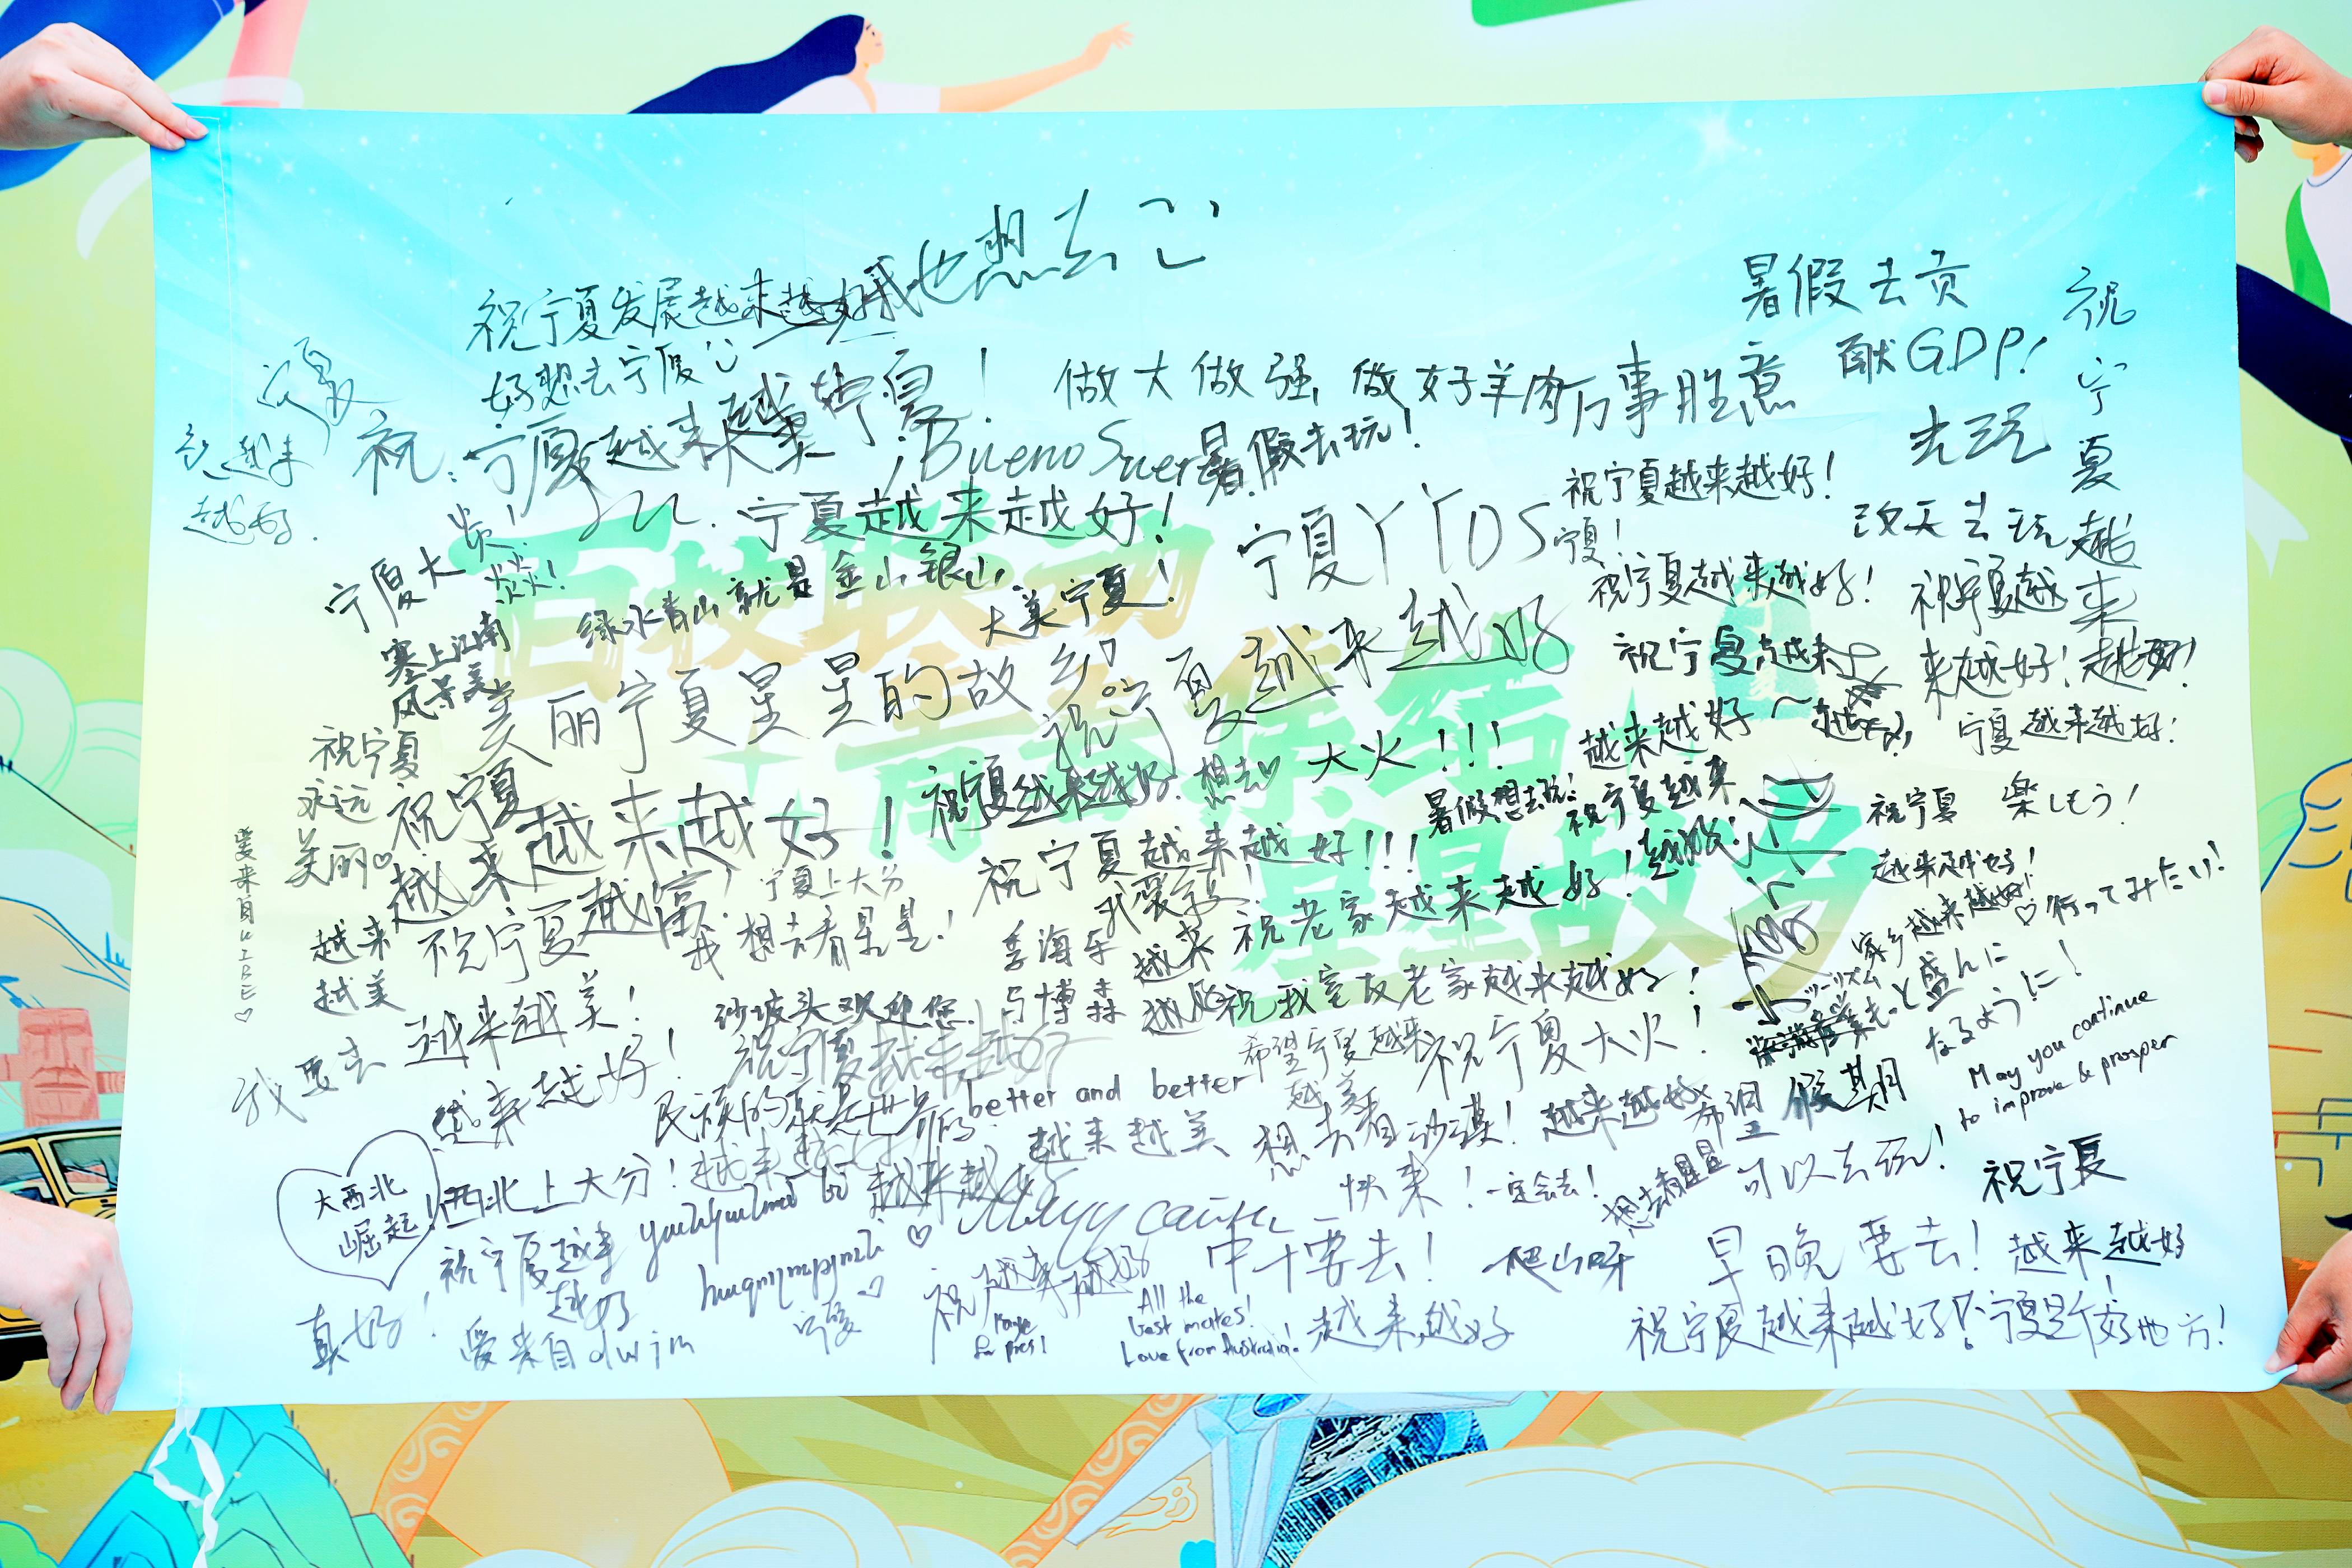 我也想去
祝宁夏发展越来越好
好想去宁夏
暑假去贡
献GDP!
祝
宁
夏
越
来
越好!
宁夏
越来
越好.
祝:宁夏越来越美
宁夏!
做大做强,做好羊肉
万事胜意
去玩
¡Bueno Suer
暑假去玩!
宁夏越来越好!
祝宁夏越来越好!
宁夏YYDS
宁夏!
改天去玩
宁夏大
火!
绿水青山就是金山银山
大美宁夏!
祝宁夏越来越好!
祝宁夏越
来越好!
百校联动
青春集结
星星故乡
塞上江南
风景美
美丽宁夏星星的故乡
祝宁夏越来越好
祝宁夏越来
越来越好~
宁夏越来越好!
祝宁夏
永远
美丽♡
祝宁夏
越来越来越好!
祝宁夏越来越好.
想去♡
大火!!!
暑假想去玩!
祝宁夏越来
越好!
祝宁夏
越来越好!
楽しもう!
爱来自KIBBE♡
越来
越美
祝宁夏越富
宁夏上大分
我想去看星星!
祝宁夏越来越好!!!
我爱宁夏!
祝老家越来越好!
家乡越来越好!
♡行ってみたい!
越来越美!
李海东
与博森
越来
越好
祝我室友老家越来越好!
ツーリズム
もっと盛んに
なるように!
我要去
越来越好!
沙坡头欢迎您
祝宁夏越来越好
希望宁夏越来
越美
祝宁夏大火!
May you continue
to improve & prosper
民族的就是世界的
better and better
越来越美
想去看沙漠!
越来越好
希望假期
可以去玩!
大西北
崛起!
西北上大分!
越来越好
越来越好
快来!
一定会去!
想去看星星
祝宁夏
越来越好
真好!
祝宁夏越来
越好
爱来自dwjm
宁夏
祝越来越好
All the
best mates!
Love from Australia!
中十要去!
爬山呀
早晚要去!
越来越好
祝宁夏越来越好!
宁夏是个好地方!